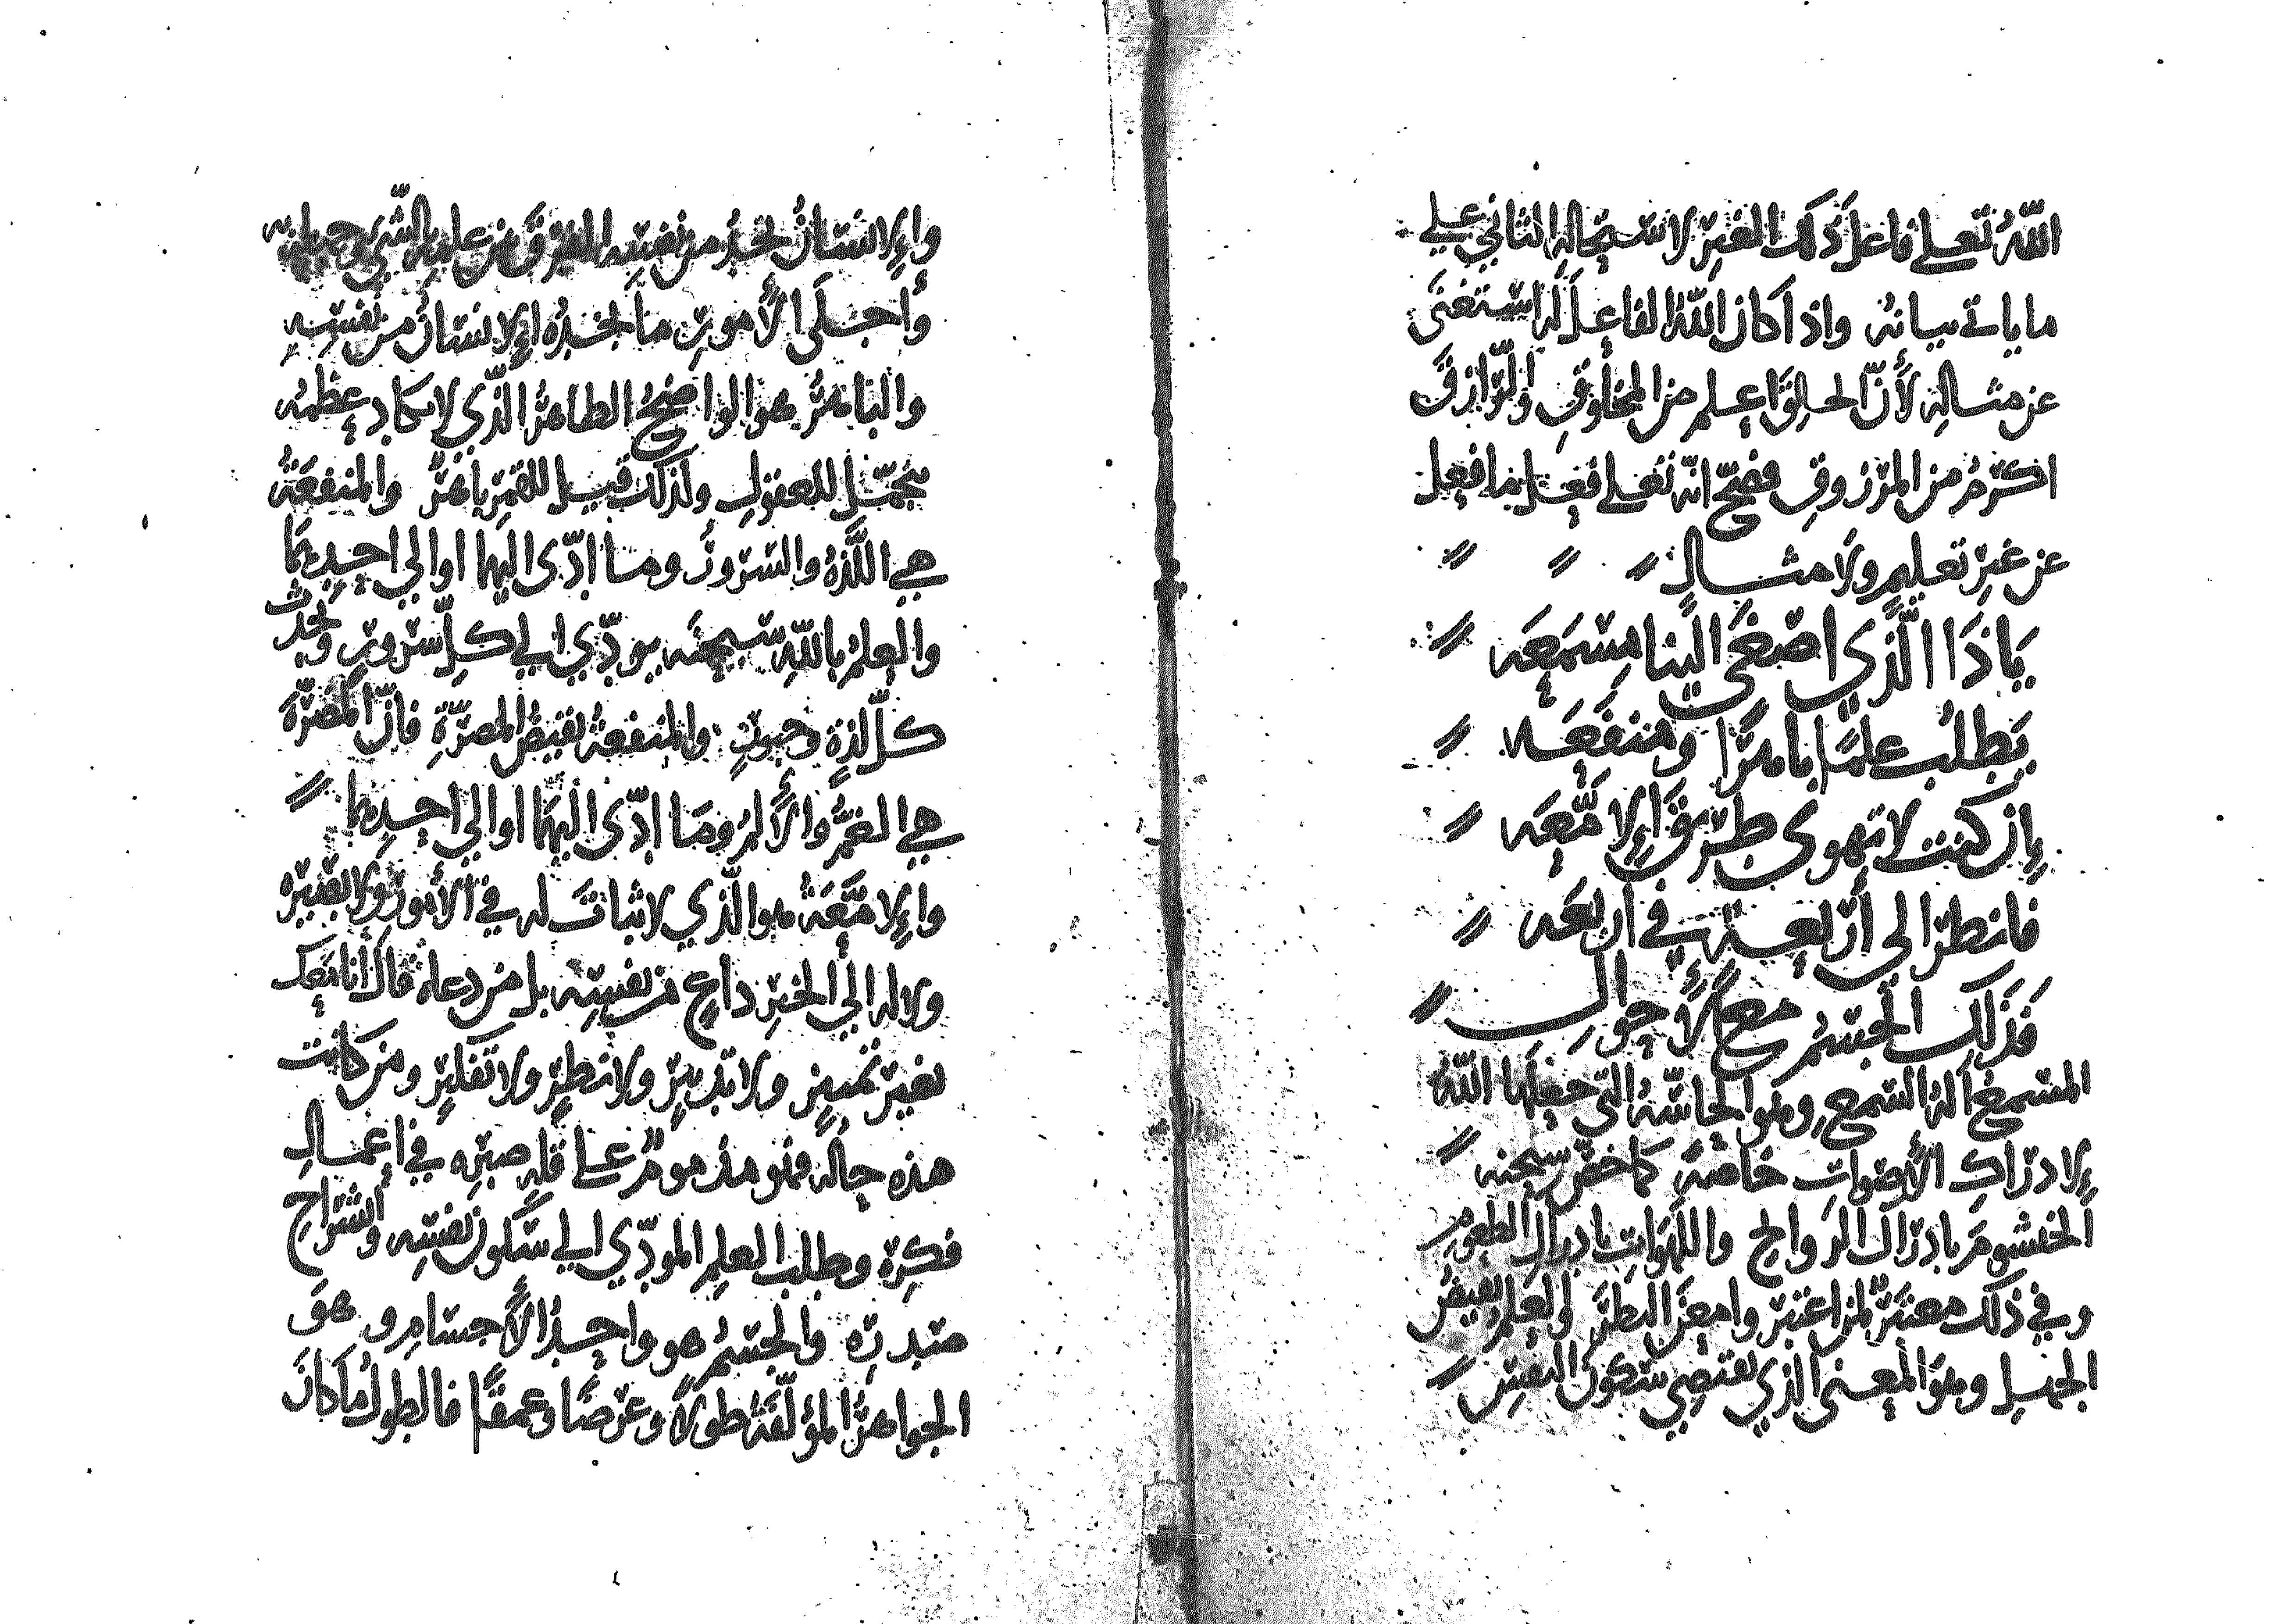 اللّهُ تعلى فاعلَ ذلك الغيرِ لاستحالةِ الثاني على
ما ياتي بيانُه واذا كان اللّهُ الفاعلَ له استغنَى
عن مثالِه لأنَّ الخالِقَ اعلم من المخلُوقِ والرّازقَ
اكرمُ من المرزوقِ فصحّ انّه تعلى فعل ما فعل
عن غيرِ تعليمٍ ولا مثالٍ
يَاذَا الَّذي اصْغَى الَينا مِسْمَعَه
يَطلُب علمًا باهرًا ومنفَعَه
إن كنت لا تهوى طريقَ الإمَّعَه
فانظر الى أربعةٍ في اربَعَه
فَذَلك الجسمُ مع الأحوالِ
المسمعُ آلةُ السّمعِ وهو الحاسّةُ التي جعلها اللّهُ
لإدراكِ الأصواتِ خاصّةً كما خصّ سبحنه
الخيشومَ بادراك الروايح واللّهَوَاتِ بادراك الطعومِ
وفي ذلك معتبَرٌ لمن اعتبر وامعنَ النظرَ والعلمُ نقيضُ
الجهلِ وهوَ المعنى الذي يقتضي سكونَ النفسِ
والإنسانُ يجدُ من نفسِه الفرقَ بين علمه بالشيِ وجهله
وأجلَى الأمورِ ما يجدُه الإنسانُ من نفسِه
والباهرُ هو الواضحُ الظاهرُ الَّذي لا يكاد عظمُه
يحتمل للعقولِ ولذلك قيل للقمرِ باهرٌ والمنفعَةُ
هي اللَّذّةُ والسّرورُ وما ادّى اليهما او الى احدِهما
والعلمُ باللّهِ سبحنَه يودّي الى كلِّ سرورٍ ويحدث
كلَّ لذةٍ وحبورٍ والمنفعةُ نقيضُ المضرّةِ فانّ المضَرّةَ
هي الغمُّ والألمُ ومَا ادّى اليهمَا او الى احدِهما
والإمَّعَةُ هو الّذي لا ثباتَ له في الأمورِ ولا بصيرة
ولا له الى الخيرِ داعٍ من نفسِه بل من دعاه قال أنا معك
بغيرِ تمييزٍ ولا تدبيرٍ ولا نظرٍ ولا تفكيرٍ ومن كانت
هذه حالُه فهو مذمومٌ على قلةِ صبرِه في إعمالِ
فكرِه وطلب العلمِ المودّي الى سكون نفسِه وانشراحِ
صدرِه والجسمُ هو واحدُ الأجسامِ وهوَ
الجواهرُ المؤلَّفَةُ طولًا وعرضًا وعمقًا فالطولُ ما كانَ